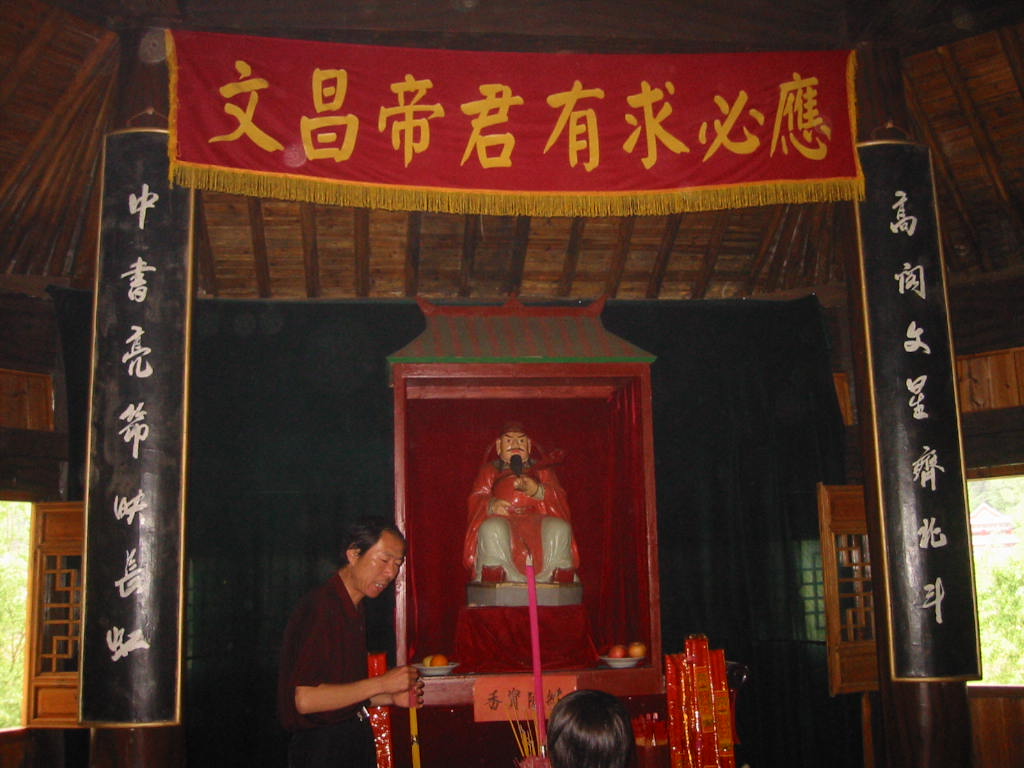 文昌帝君有求必應
高阁文星齊北斗
中書亮節映長虹